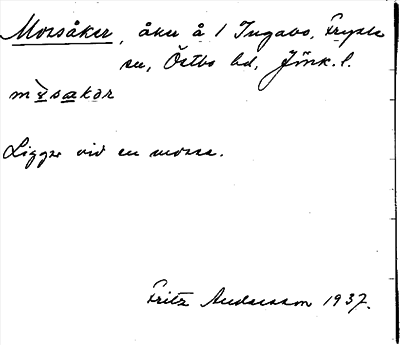 Morsåker, åker å 1 Ingabo, Fryele
sn, Östbo hd, Jönk. l.
Ligger vid en mosse.
Fritz Andersson 1937.